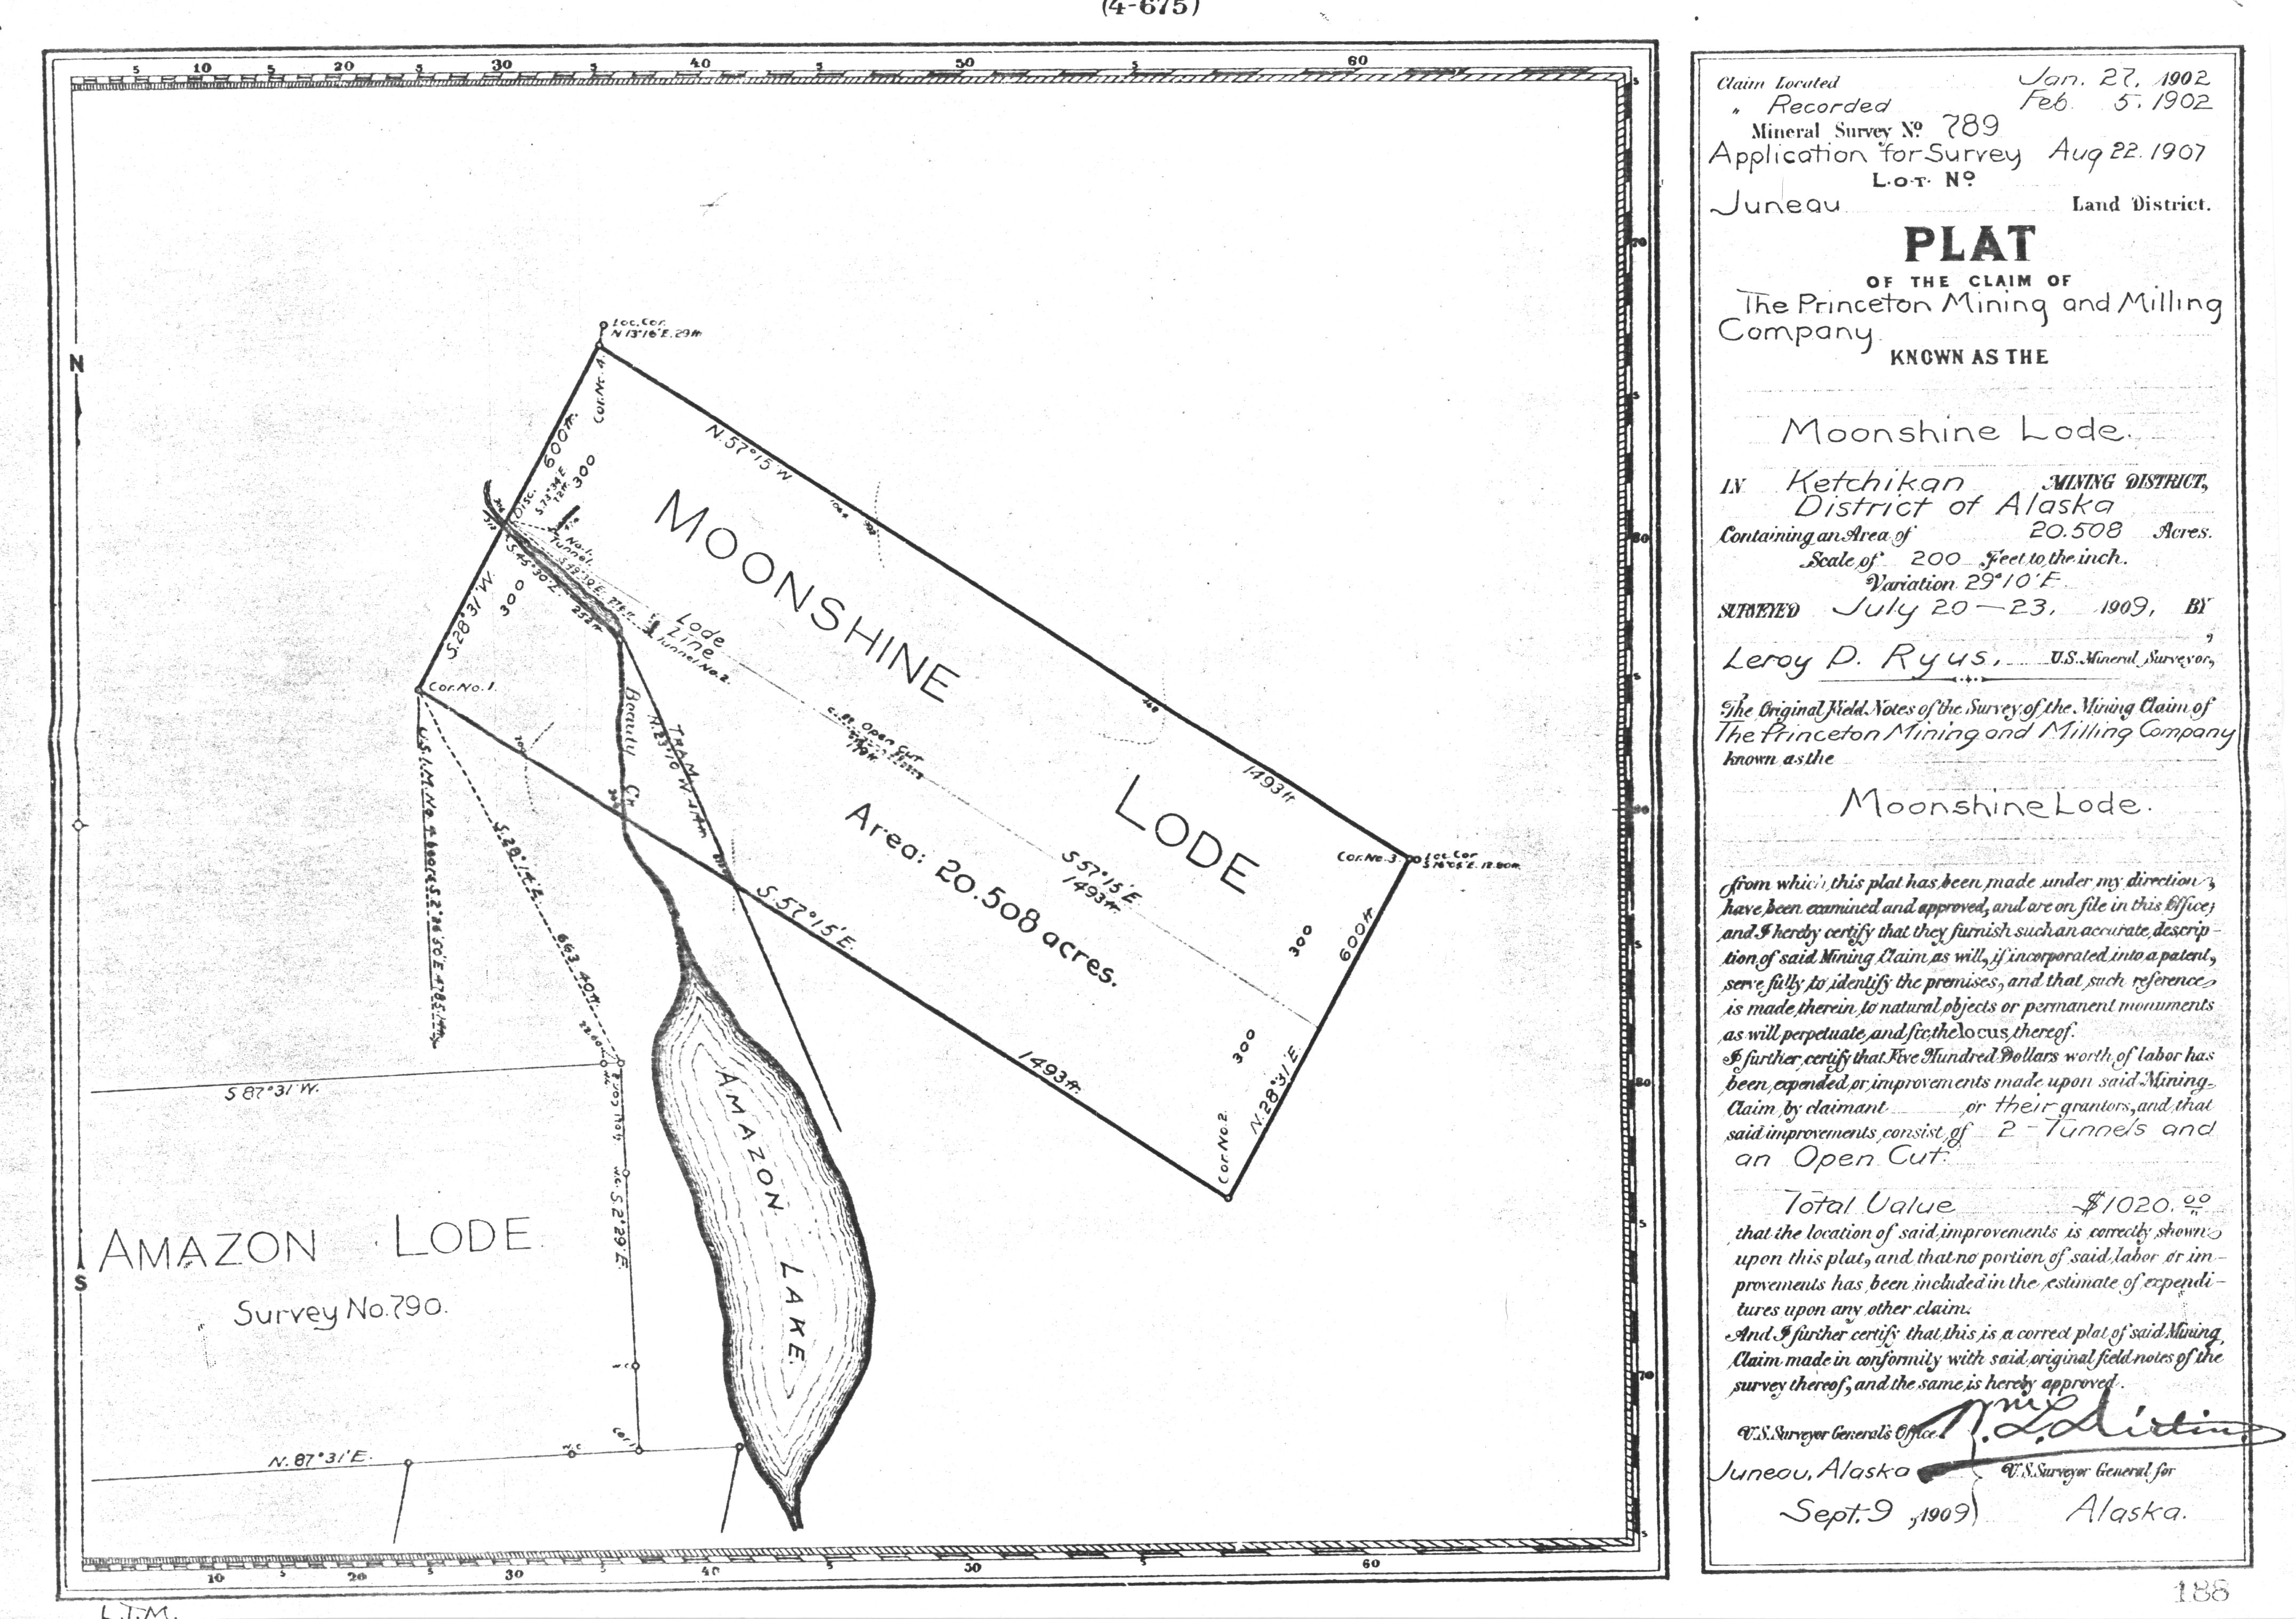 (4-675)
5 10 5 20 5 30 5 40 5 50 5 60
5
70
5
80
5
90
5
80
5
70
5
N
S
Loc. Cor.
N 13°16'E. 29ft
Cor. No. 4.
600ft.
300
N. 57°15'W
Disc.
S. 73°34'E
12ft.
No. 1.
Tunnel
S. 45°30'E.
252ft
S. 28°31'W.
300
MOONSHINE
Lode
Line
Tunnel No. 2.
Cor. No. 1.
Beauty Cr.
TRAM
Open Cut
LODE
1493ft.
Area: 20.508 acres.
S 57°15'E
1493ft.
Cor. No. 3.
Loc. Cor
300
600ft
S. 57°15'E.
663.40ft.
1493ft.
300
N. 28°31'E.
Cor. No. 2.
S 87°31'W.
S. 2°29'E.
AMAZON LODE.
Survey No. 790.
AMAZON LAKE
N. 87°31'E.
W.C
Cor. 1
10 5 20 5 30 5 40 5 50 5 60
L.T.M.
Claim Located Jan. 27, 1902
" Recorded Feb. 5. 1902
Mineral Survey No. 789
Application for Survey Aug 22. 1907
L.O.T. No.
Juneau Land District.
PLAT
OF THE CLAIM OF
The Princeton Mining and Milling
Company
KNOWN AS THE
Moonshine Lode.
IN Ketchikan MINING DISTRICT,
District of Alaska
Containing an Area of 20.508 Acres.
Scale of 200 Feet to the inch.
Variation 29°10'E.
SURVEYED July 20—23, 1909, BY
Leroy D. Ryus, U.S. Mineral Surveyor,
The Original Field Notes of the Survey of the Mining Claim of
The Princeton Mining and Milling Company
known as the
Moonshine Lode.
from which this plat has been made under my direction,
have been examined and approved, and are on file in this Office;
and I hereby certify that they furnish such an accurate descrip-
tion of said Mining Claim as will, if incorporated into a patent,
serve fully to identify the premises, and that such reference
is made therein to natural objects or permanent monuments
as will perpetuate and fix the locus thereof.
I further certify that Five Hundred Dollars worth of labor has
been expended or improvements made upon said Mining
Claim by claimant or their grantors, and that
said improvements consist of 2 - Tunnels and
an Open Cut.
Total Value $1020.00
that the location of said improvements is correctly shown
upon this plat, and that no portion of said labor or im-
provements has been included in the estimate of expendi-
tures upon any other claim.
And I further certify that this is a correct plat of said Mining
Claim made in conformity with said original field notes of the
survey thereof, and the same is hereby approved.
U.S. Surveyor General's Office
Juneau, Alaska U.S. Surveyor General for
Sept. 9, 1909 Alaska.
188